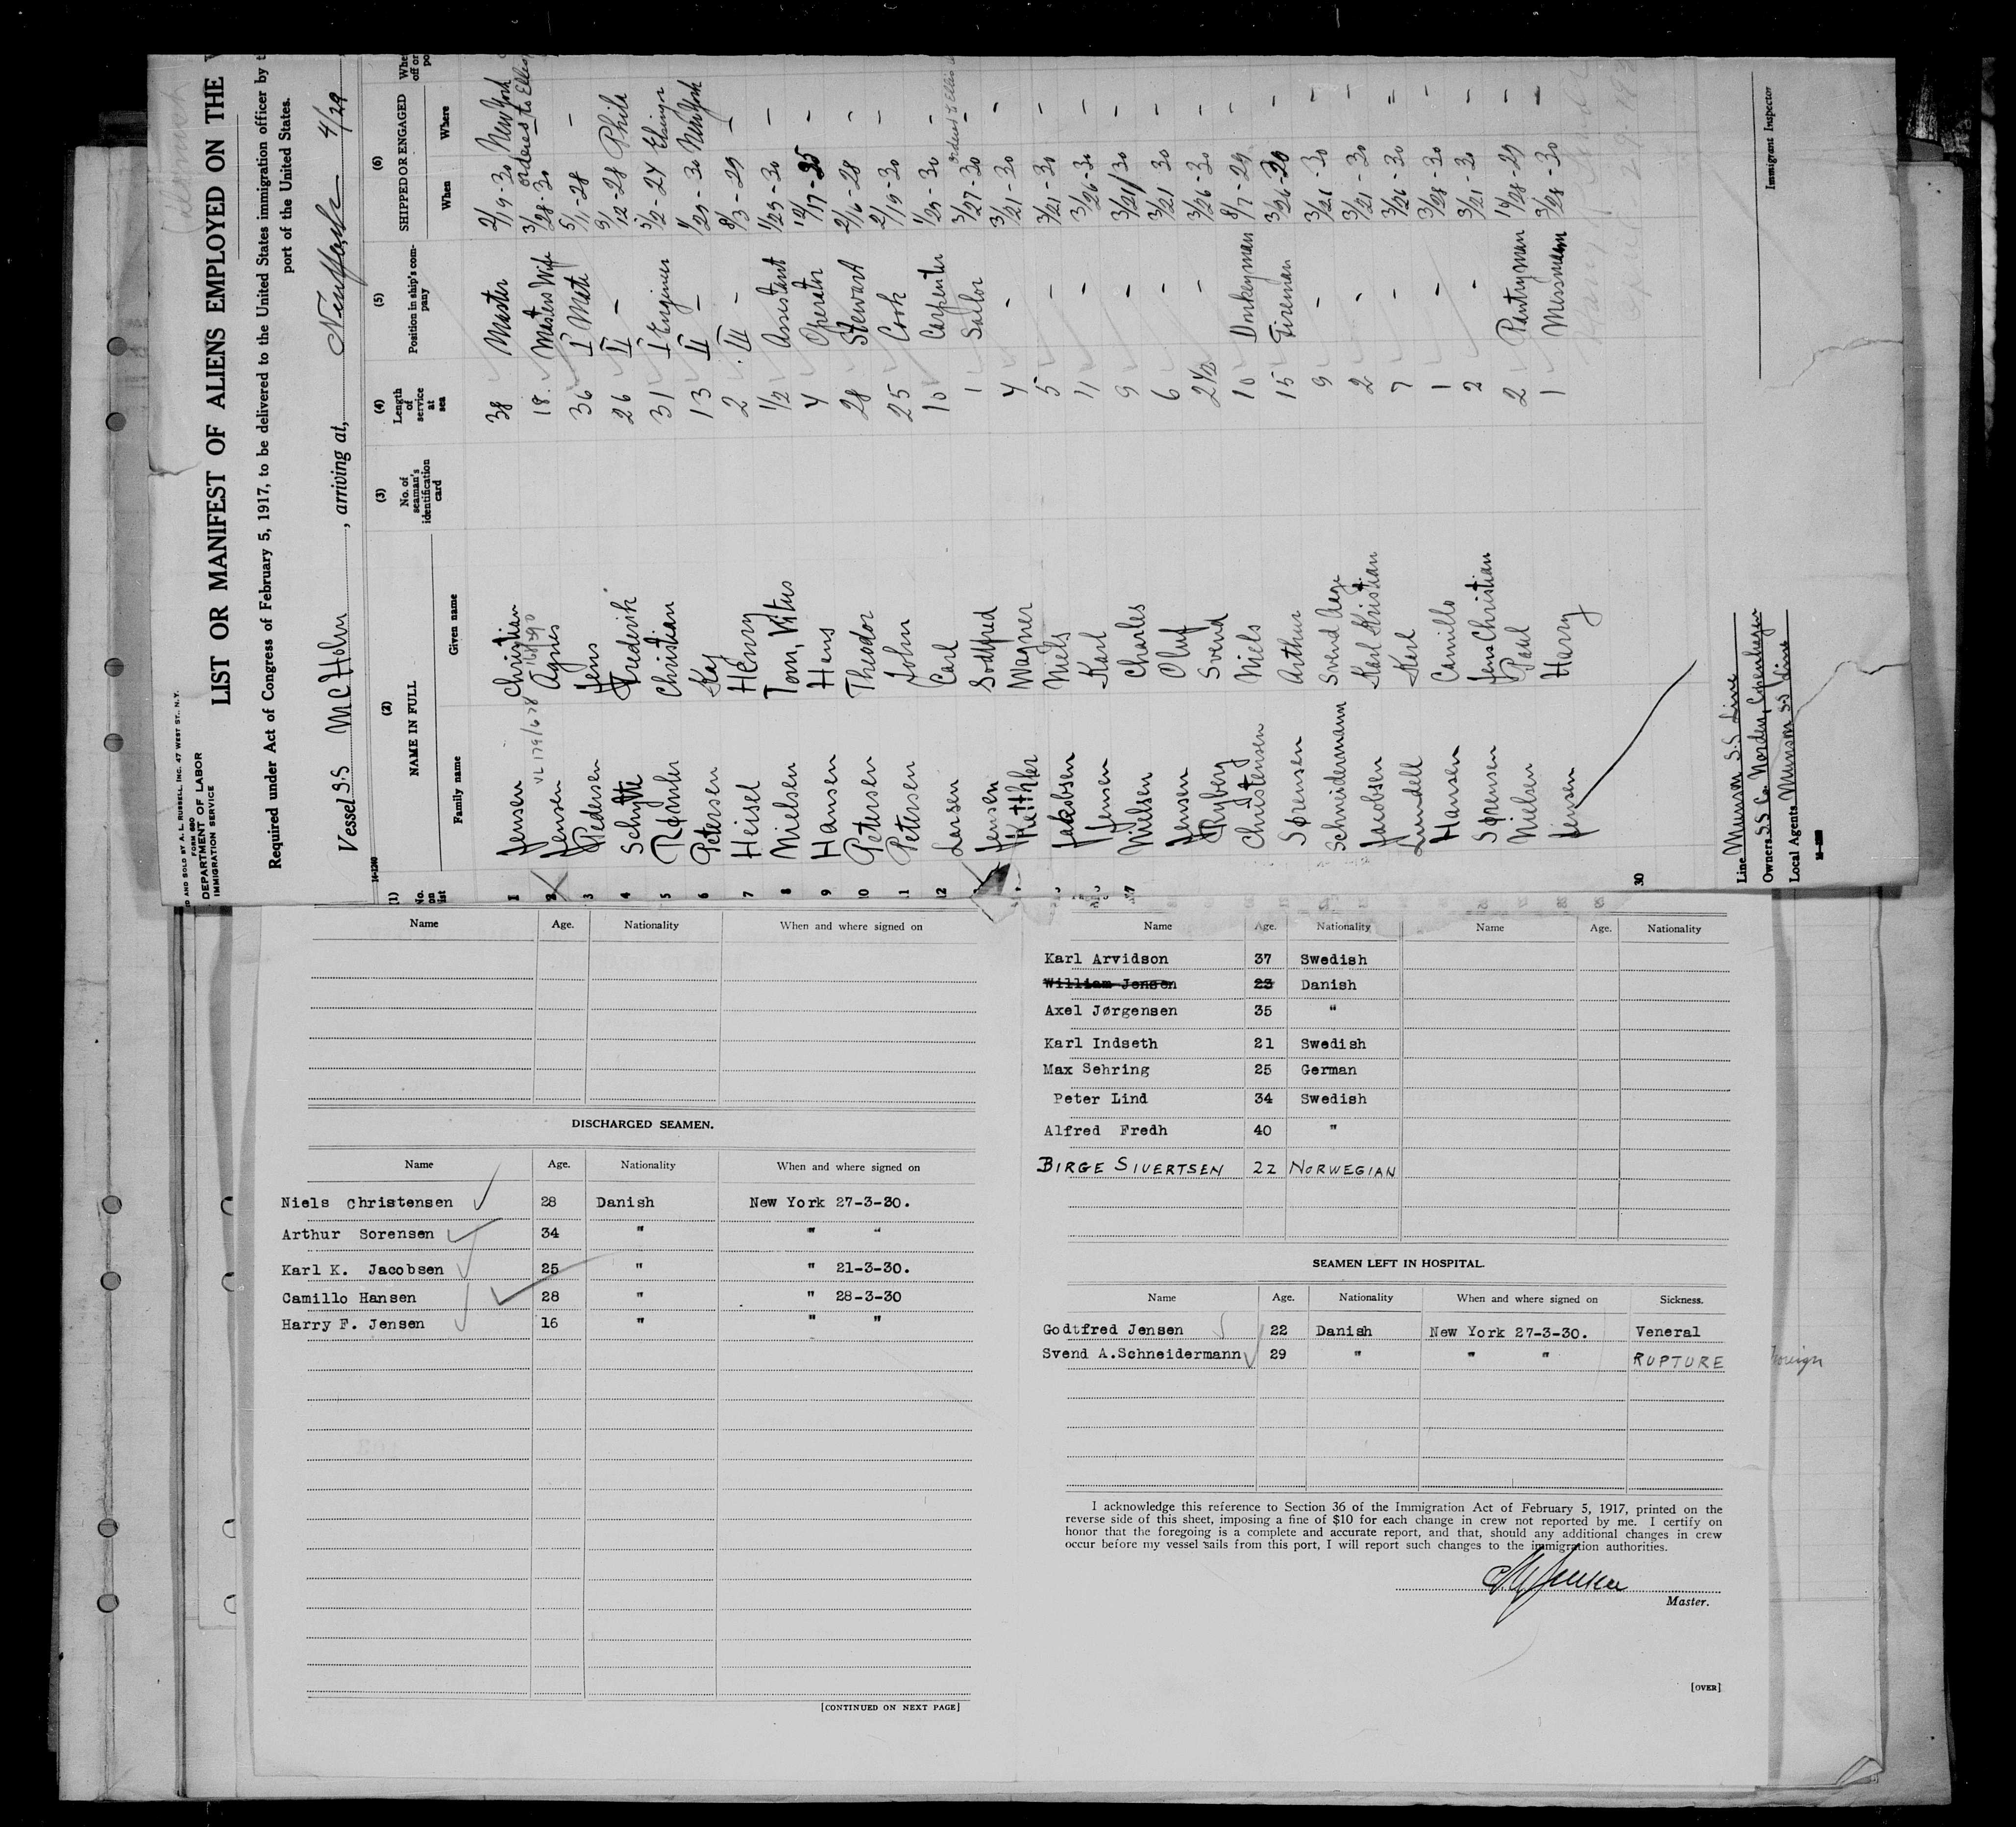 LIST OR MANIFEST OF ALIENS EMPLOYED ON THE
Required under Act of Congress of February 5, 1917, to be delivered to the United States immigration officer by t
port of the United States.
AND SOLD BY A. L. RUSSELL, INC. 47 WEST ST., N.Y.
FORM 680
DEPARTMENT OF LABOR
IMMIGRATION SERVICE
Vessel S.S , arriving at, 4/29
14-1240
(1) (2) (3) (4) (5) (6)
No. on list NAME IN FULL No. of seaman's identification card Length of service at sea Position in ship's company SHIPPED OR ENGAGED
Family name Given name When Where
1 Jensen Christian 38 Master 2/19-30 New York
2 Jensen Agnes 18 Masters Wife 3/28-30
3 Pedersen Jens 36 I Mate 5/1-28 –
4 Schytte Frederik 26 II – 9/12-28 Phila
5 Christian 31 I Engineer 3/2-24 Elsinore
6 Petersen Kaj 13 II – 1/29-30 New York
7 Heisel Henry 2 III – 8/3-29 –
8 Nielsen Tom, Vitus 1/2 Assistant 1/29-30 –
9 Hansen Hans 4 Operator –
10 Petersen Theodor 28 Stewart 2/16-28 –
11 Petersen John 25 Cook 2/19-30 –
12 Larsen Carl 10 Carpenter 1/29-30 –
Jensen Godtfred 1 Sailor 3/27-30 –
Ketthler Magner 4 – 3/21-30 –
Jakobsen Niels 5 – 3/21-30 –
Jensen Karl 11 – 3/26-30 –
17 Nielsen Charles 9 – 3/21/30 –
Jensen Oluf 6 – 3/21-30 –
Ryberg Svend 2 1/2 – 3/26-30 –
Christensen Niels 10 Donkeyman 8/7-29 –
Sørensen Arthur 15 Fireman –
Schneidermann Svend Aage 9 – 3/21-30 –
Jacobsen Karl Kristian 2 – 3/21-30 –
Lundell Karl 7 – 3/26-30 –
Hansen Camillo 1 – 3/28-30 –
Sørensen Jens Christian 2 – 3/21-30 –
Nielsen Paul 2 Pantryman –
Jensen Harry 1 Messman 3/28-30 –
30
Line Munson S.S Line
Owners SS Co. Norden, Copenhagen
Local Agents Munson S.S Line
Immigrant Inspector
Name Age. Nationality When and where signed on
DISCHARGED SEAMEN.
Name Age. Nationality When and where signed on
Niels Christensen 28 Danish New York 27-3-30.
Arthur Sorensen 34 " " "
Karl K. Jacobsen 25 " " 21-3-30.
Camillo Hansen 28 " " 28-3-30
Harry F. Jensen 16 " " "
[CONTINUED ON NEXT PAGE]
Name Age. Nationality Name Age. Nationality
Karl Arvidson 37 Swedish
William Jensen 23 Danish
Axel Jørgensen 35 "
Karl Indseth 21 Swedish
Max Sehring 25 German
Peter Lind 34 Swedish
Alfred Fredh 40 "
BIRGE SIVERTSEN 22 NORWEGIAN
SEAMEN LEFT IN HOSPITAL.
Name Age. Nationality When and where signed on Sickness.
Godtfred Jensen 22 Danish New York 27-3-30. Veneral
Svend A.Schneidermann 29 " " " RUPTURE
I acknowledge this reference to Section 36 of the Immigration Act of February 5, 1917, printed on the
reverse side of this sheet, imposing a fine of $10 for each change in crew not reported by me. I certify on
honor that the foregoing is a complete and accurate report, and that, should any additional changes in crew
occur before my vessel sails from this port, I will report such changes to the immigration authorities.
Master.
[OVER]